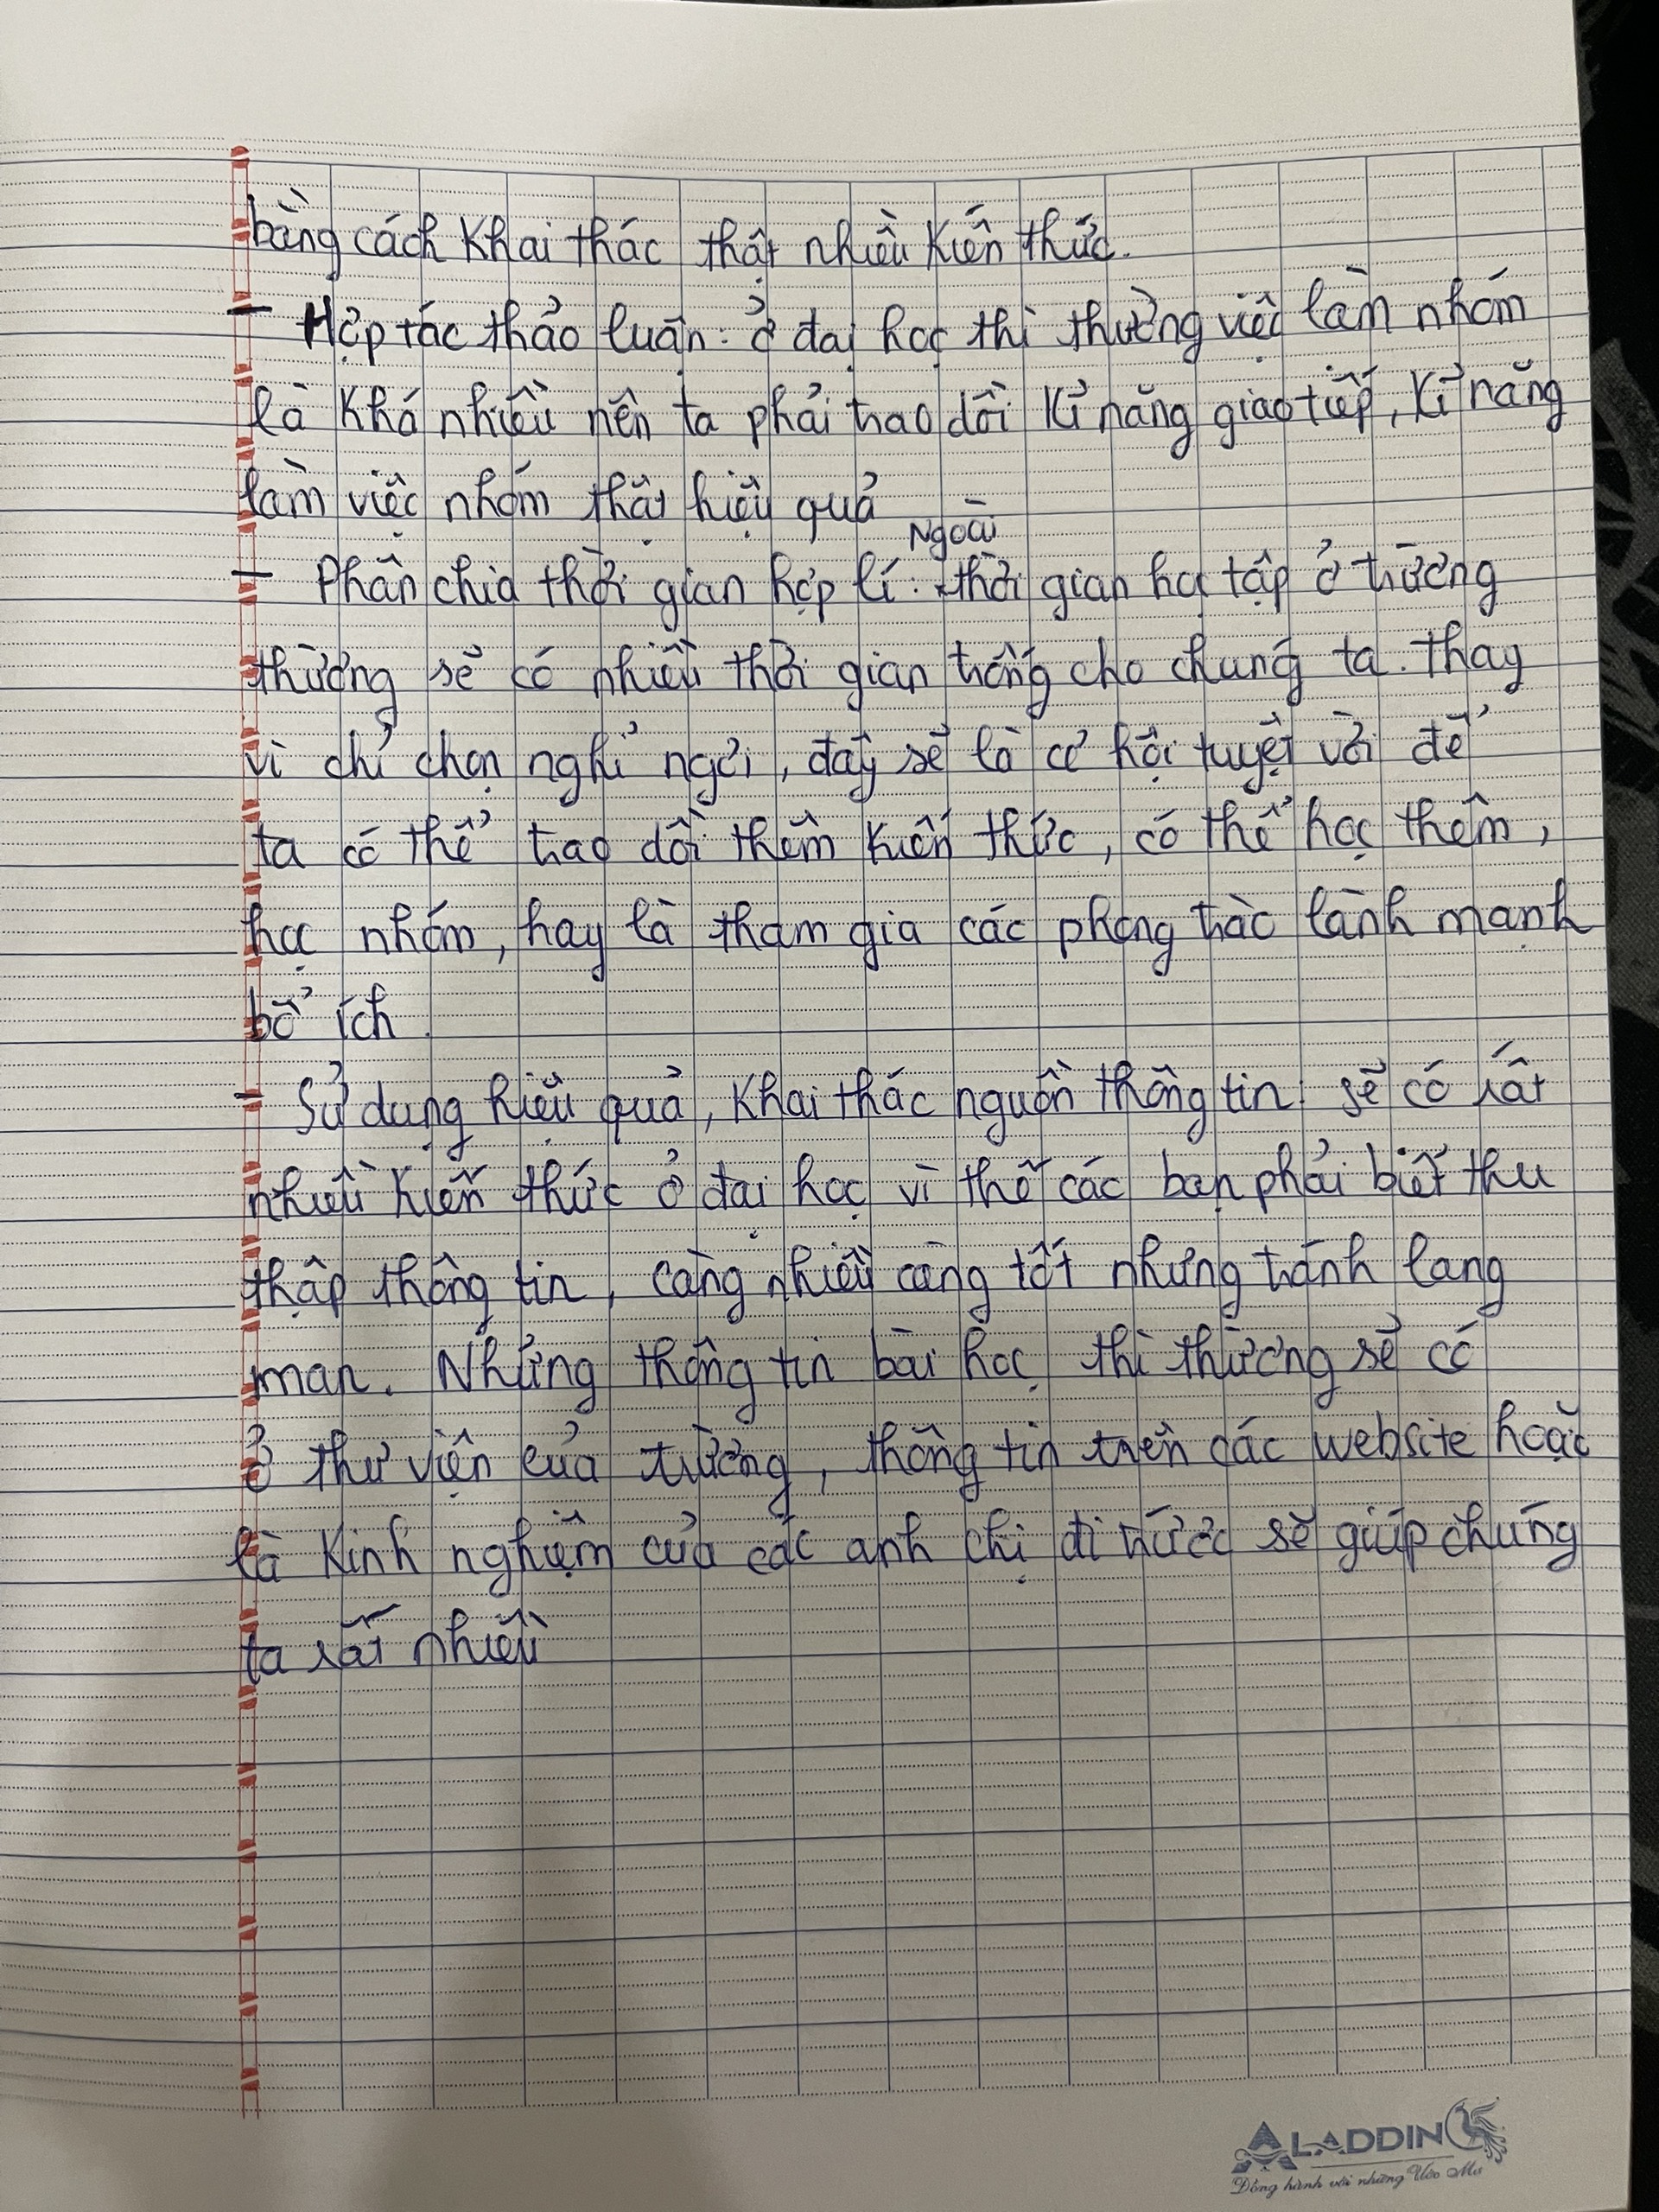 bằng cách khai thác thật nhiều kiến thức.
- Hợp tác thảo luận: ở đại học thì thường việc làm nhóm
là khá nhiều nên ta phải trao dồi kĩ năng giao tiếp, kĩ năng
làm việc nhóm thật hiệu quả
Ngoài
- Phân chia thời gian hợp lí: thời gian học tập ở trường
thường sẽ có nhiều thời gian trống cho chúng ta. Thay
vì chỉ chọn nghỉ ngơi, đây sẽ là cơ hội tuyệt vời để
ta có thể trao dồi thêm kiến thức, có thể học thêm,
học nhóm, hay là tham gia các phong trào lành mạnh
bổ ích.
- Sử dụng hiệu quả, khai thác nguồn thông tin: sẽ có rất
nhiều kiến thức ở đại học vì thế các bạn phải biết thu
thập thông tin, càng nhiều càng tốt nhưng tránh lang
man. Những thông tin bài học thì thường sẽ có
ở thư viện của trường, thông tin trên các website hoặc
là kinh nghiệm của các anh chị đi trước sẽ giúp chúng
ta rất nhiều
ALADDIN
Đồng hành với những Ước Mơ